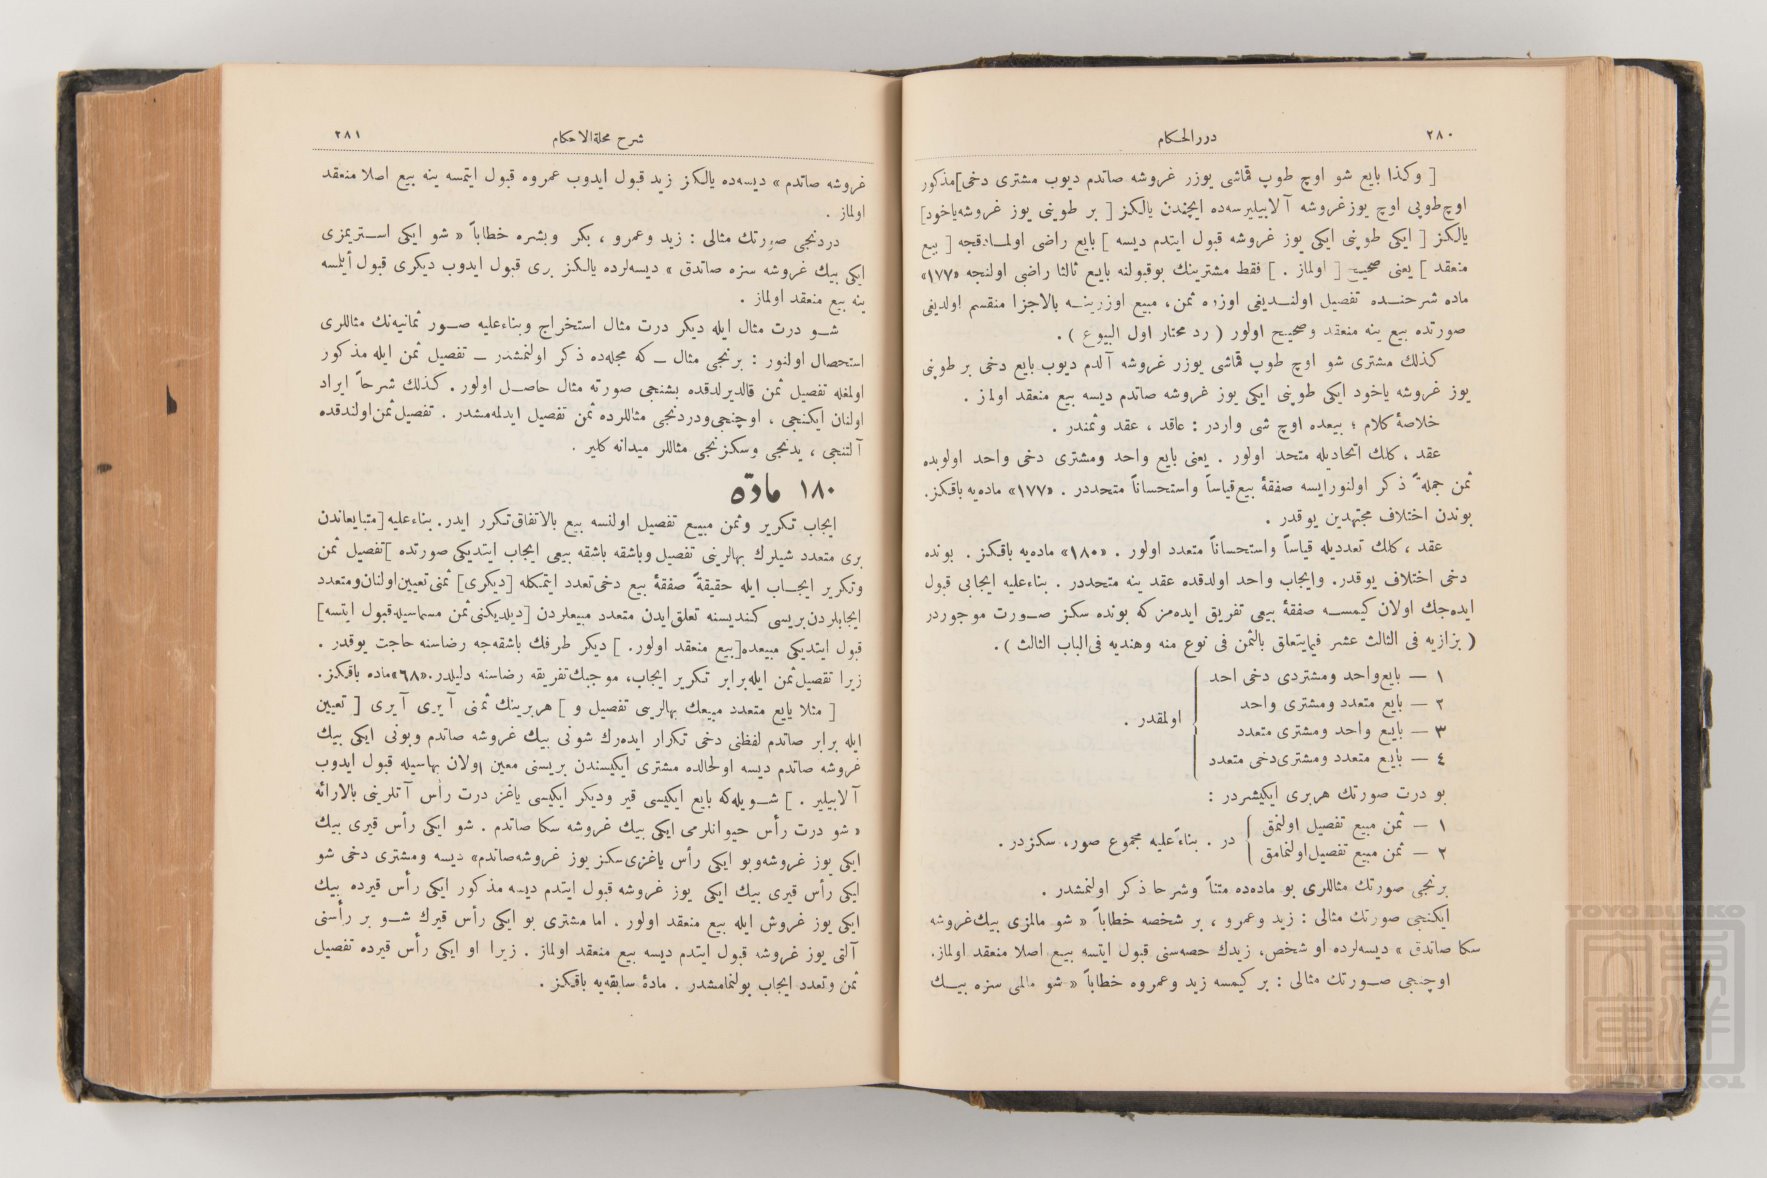 ٢٨٠
دررالحكام
[ وكذا بايع شو اوچ طوپ قماشى يوزر غروشه صاتدم ديوب مشترى دخى ] مذكور
اوچ طوپى اوچ يوزغروشه آلابيليرسه‌ده ايچندن يالكز [ بر طوپنى يوز غروشه ياخود ]
يالكز [ ايكى طوپنى ايكى يوز غروشه قبول ايتدم ديسه ] بايع راضى اولمادقجه [ بيع
منعقد ] يعنى صحيح [ اولماز . ] فقط مشترينك بوقبولنه بايع ثالثا راضى اولنجه «١٧٧»
ماده شرحنده تفصيل اولنديغى اوزره ثمن، مبيع اوزرينه بالاجزا منقسم اولديغى
صورتده بيع ينه منعقد وصحيح اولور ( رد محتار اول البيوع ) .
كذلك مشترى شو اوچ طوپ قماشى يوزر غروشه آلدم ديوب بايع دخى بر طوپنى
يوز غروشه ياخود ايكى طوپنى ايكى يوز غروشه صاتدم ديسه بيع منعقد اولماز .
خلاصهٔ كلام ؛ بيعده اوچ شى واردر : عاقد ، عقد وثمندر .
عقد ، كلك اتحاديله متحد اولور . يعنى بايع واحد ومشترى دخى واحد اولوبده
ثمن جملةً ذكر اولنورايسه صفقهٔ بيع قياساً واستحساناً متحددر . «١٧٧» ماده‌يه باقكز.
بوندن اختلاف مجتهدين يوقدر .
عقد ، كلك تعدديله قياساً واستحساناً متعدد اولور . «١٨٠» ماده‌يه باقكز . بونده
دخى اختلاف يوقدر. وايجاب واحد اولدقده عقد ينه متحددر . بناءعليه ايجابى قبول
ايده‌جك اولان كيمسه صفقهٔ بيعى تفريق ايده‌مز كه بونده سكز صورت موجوددر
( بزازيه فى الثالث عشر فيمايتعلق بالثمن فى نوع منه وهنديه فى‌الباب الثالث ) .
١ — بايع‌واحد ومشتردى دخى احد
٢ — بايع متعدد ومشترى واحد
٣ — بايع واحد ومشترى متعدد
٤ — بايع متعدد ومشترى‌دخى متعدد
اولمقدر .
بو درت صورتك هربرى ايكيشردر :
١ — ثمن مبيع تفصيل اولنمق
٢ — ثمن مبيع تفصيل‌اولنمامق
در . بناءًعليه مجموع صور، سكزدر .
برنجى صورتك مثاللرى بو ماده‌ده متناً وشرحا ذكر اولنمشدر .
ايكنجى صورتك مثالى : زيد وعمرو ، بر شخصه خطاباً « شو مالمزى بيك‌غروشه
سكا صاتدق » ديسه‌لرده او شخص، زيدك حصه‌سنى قبول ايتسه بيع اصلا منعقد اولماز.
اوچنجى صورتك مثالى : بر كيمسه زيد وعمروه خطاباً « شو مالمى سزه بيك
٢٨١
شرح مجلةالاحكام
غروشه صاتدم » ديسه‌ده يالكز زيد قبول ايدوب عمروه قبول ايتمسه ينه بيع اصلا منعقد
اولماز .
دردنجى صورتك مثالى : زيد وعمرو ، بكر وبشره خطاباً « شو ايكى استريمزى
ايكى بيك غروشه سزه صاتدق » ديسه‌لرده يالكز برى قبول ايدوب ديكرى قبول ايلمسه
ينه بيع منعقد اولماز .
شو درت مثال ايله ديكر درت مثال استخراج وبناءعليه صور ثمانيه‌نك مثاللرى
استحصال اولنور : برنجى مثال — كه مجله‌ده ذكر اولنمشدر — تفصيل ثمن ايله مذكور
اولمغله تفصيل ثمن قالديرلدقده بشنجى صورته مثال حاصل اولور . كذلك شرحاً ايراد
اولنان ايكنجى ، اوچنجى‌ودردنجى مثاللرده ثمن تفصيل ايدلمه‌مشدر . تفصيل‌ثمن‌اولندقده
آلتنجى ، يدنجى وسكزنجى مثاللر ميدانه كلير .
١٨٠ مادّه
ايجاب تكرير وثمن مبيع تفصيل اولنسه بيع بالاتفاق تكرر ايدر. بناءعليه [ متبايعاندن
برى متعدد شيلرك بهالرينى تفصيل وباشقه باشقه بيعى ايجاب ايتديكى صورتده ] تفصيل ثمن
وتكرير ايجاب ايله حقيقةً صفقهٔ بيع دخى‌تعدد ايتمكله [ديكرى] ثمنى‌تعيين‌اولنان‌ومتعدد
ايجابلردن‌بريسى كنديسنه تعلق‌ايدن متعدد مبيعلردن [ديلديكنى‌ثمن مسماسيله‌قبول ايتسه]
قبول ايتديكى مبيعده[بيع منعقد اولور. ] ديكر طرفك باشقه‌جه رضاسنه حاجت يوقدر .
زيرا تفصيل‌ثمن ايله‌برابر تكرير ايجاب، موجبك‌تفريقه رضاسنه دليلدر.«٦٨»ماده باقكز.
[ مثلا بايع متعدد مبيعك بهالرينى تفصيل و ] هربرينك ثمنى آيرى آيرى [ تعيين
ايله برابر صاتدم لفظنى دخى تكرار ايده‌رك شونى بيك غروشه صاتدم وبونى ايكى بيك
غروشه صاتدم ديسه اولحالده مشترى ايكيسندن بريسنى معين اولان بهاسيله قبول ايدوب
آلابيلير . ] شويله‌كه بايع ايكيسى قير وديكر ايكيسى ياغز درت رأس آتلرينى بالارائه
« شو درت رأس حيوانلرمى ايكى بيك غروشه سكا صاتدم . شو ايكى رأس قيرى بيك
ايكى يوز غروشه‌وبو ايكى رأس ياغزى‌سكز يوز غروشه‌صاتدم» ديسه ومشترى دخى شو
ايكى رأس قيرى بيك ايكى يوز غروشه قبول ايتدم ديسه مذكور ايكى رأس قيرده بيك
ايكى يوز غروش ايله بيع منعقد اولور . اما مشترى بو ايكى رأس قيرك شو بر رأسنى
آلتى يوز غروشه قبول ايتدم ديسه بيع منعقد اولماز . زيرا او ايكى رأس قيرده تفصيل
ثمن وتعدد ايجاب بولنمامشدر . مادهٔ سابقه‌يه باقكز .
TOYO BUNKO
東洋文庫
TOYO BUNKO